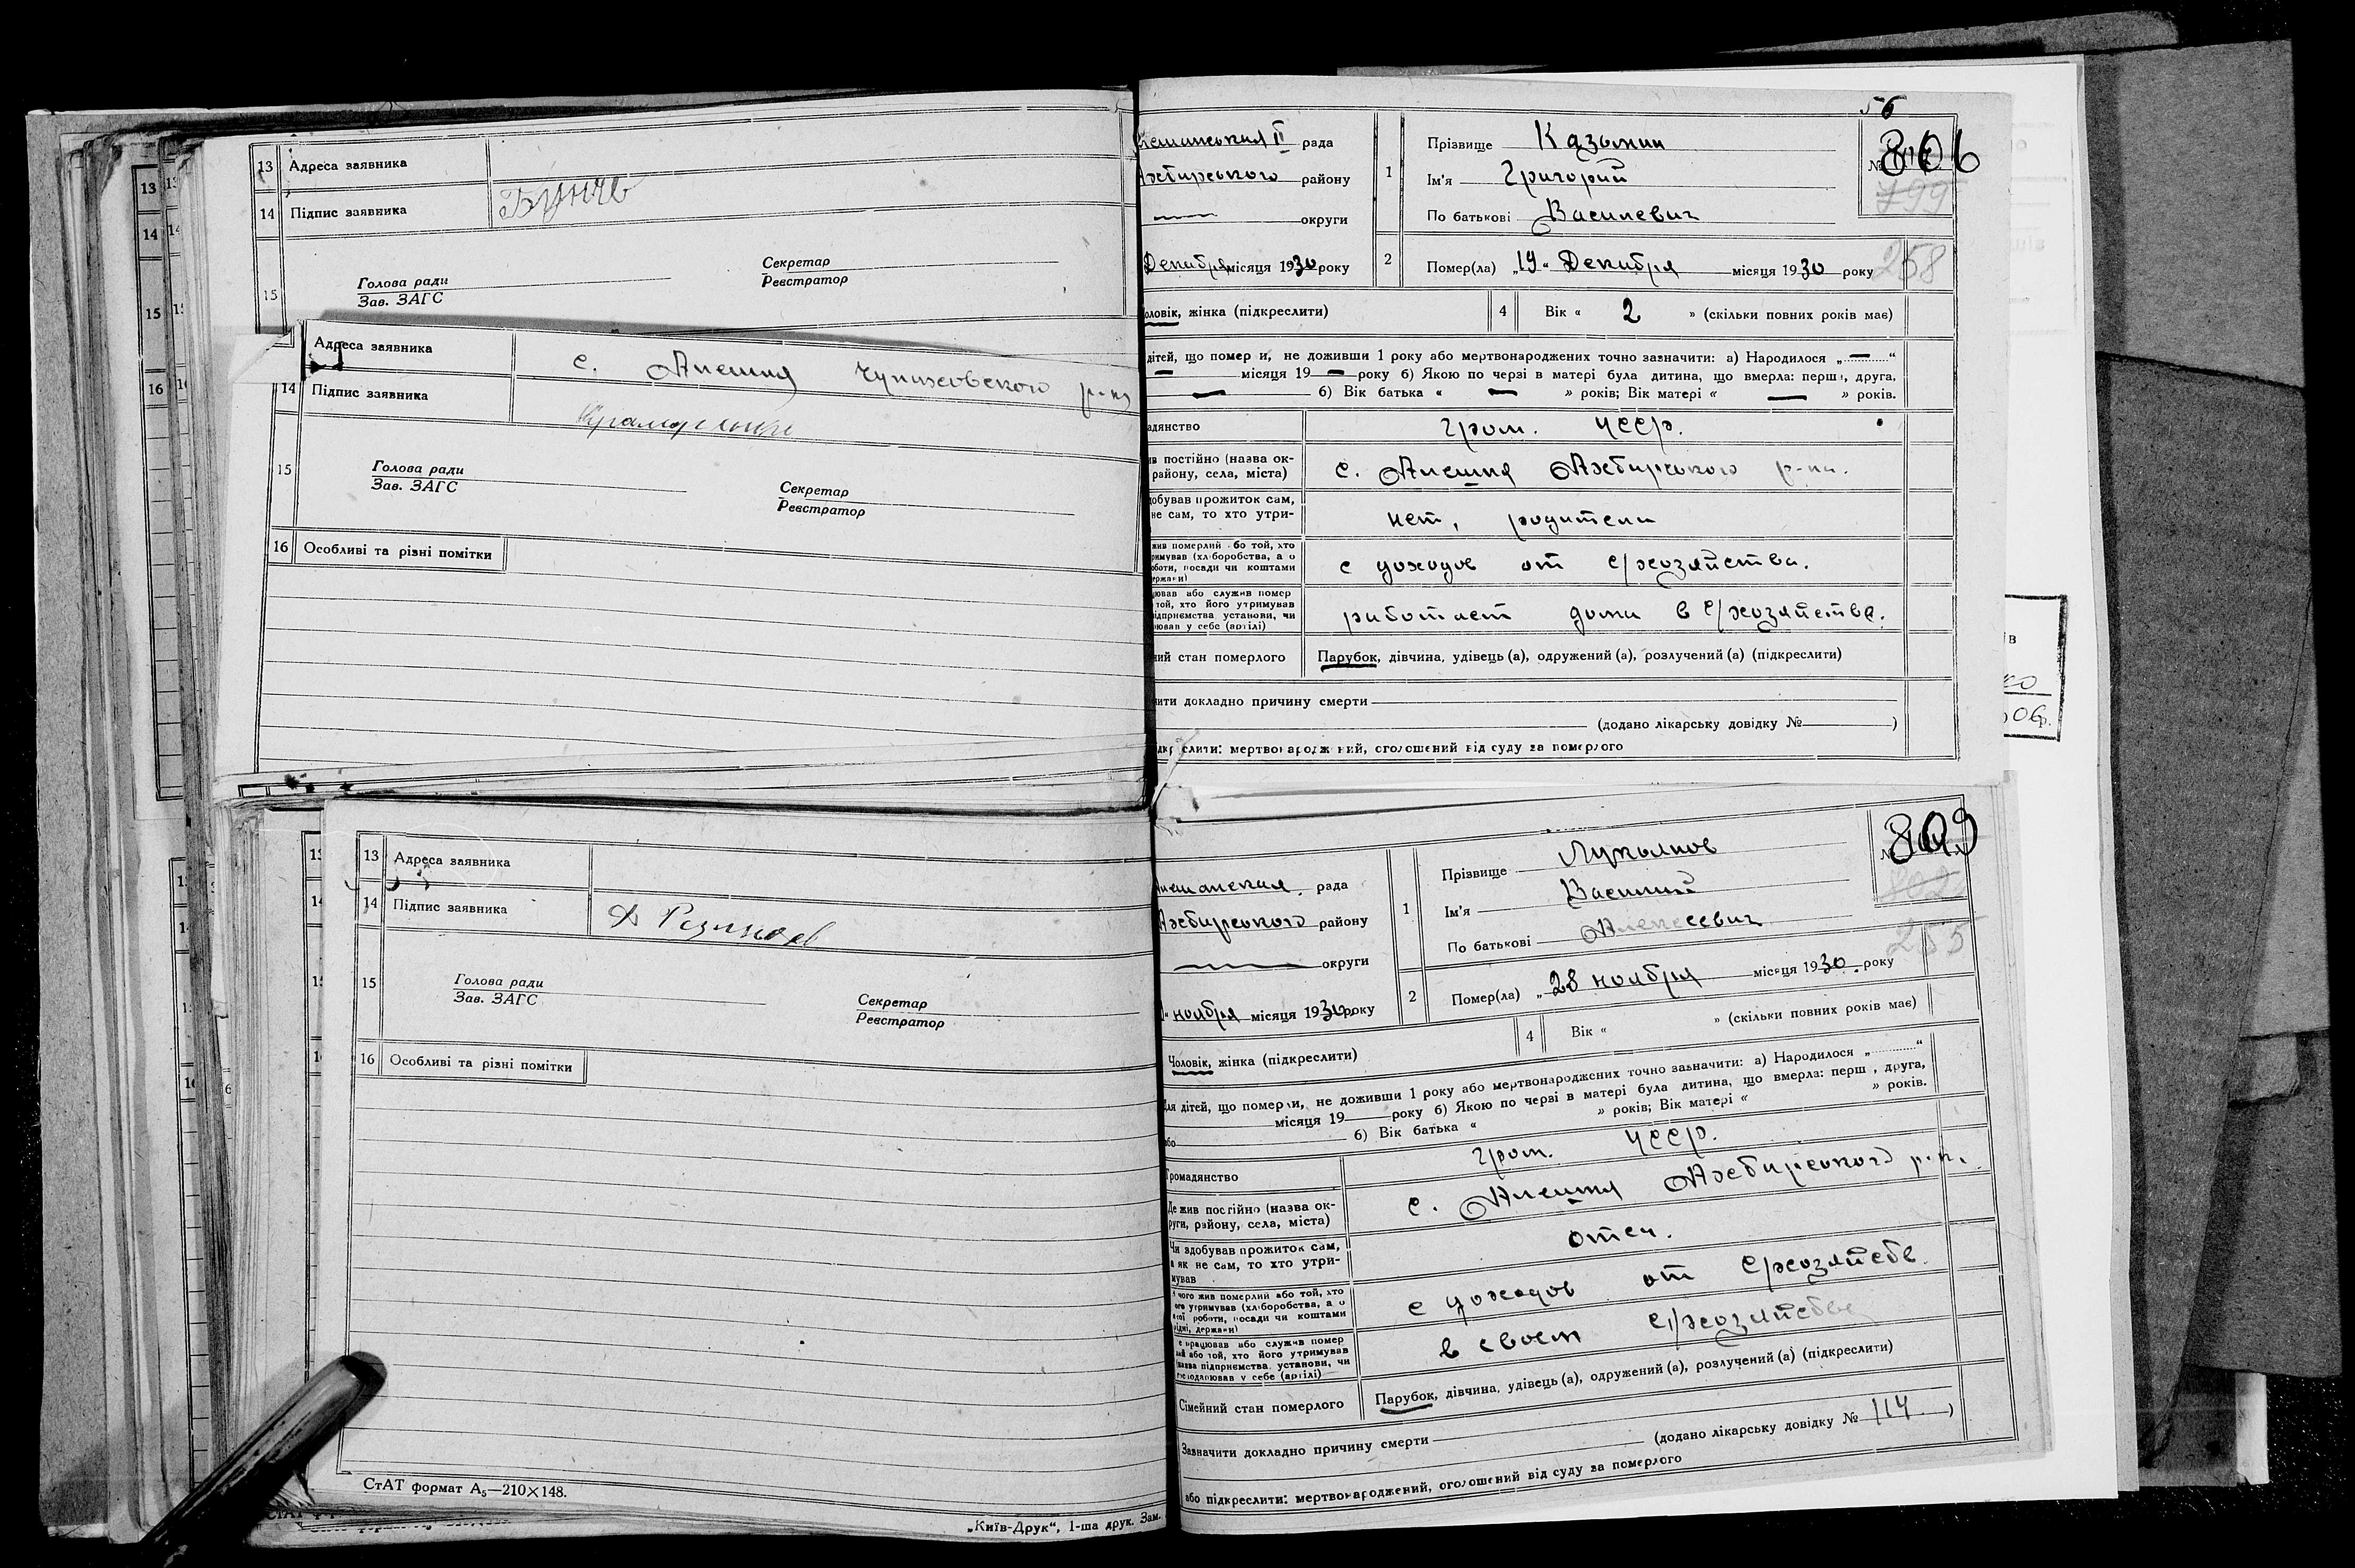 13 Адреса заявника
14 Підпис заявника Бунчв
15 Голова ради Секретар
Зав. ЗАГС Реєстратор
Адреса заявника с. Алешня Чупаховского р-на
14 Підпис заявника
15 Голова ради Секретар
Зав. ЗАГС Реєстратор
16 Особливі та різні помітки
13 Адреса заявника
14 Підпис заявника
15 Голова ради Секретар
Зав. ЗАГС Реєстратор
16 Особливі та різні помітки
СтАТ формат А5—210×148.
„Київ-Друк“, 1-ша друк. Зам.
56
рада
району
округи
Декабря місяця 1930 року
1 Прізвище Казьмин
Ім'я Григорий
По батькові Василевич
806
799
2 Помер(ла) „19“ Декабря місяця 1930 року
258
оловік, жінка (підкреслити) 4 Вік « 2 » (скільки повних років має)
дітей, що померли, не доживши 1 року або мертвонароджених точно зазначити: а) Народилося „ — “
— місяця 19 — року б) Якою по черзі в матері була дитина, що вмерла: перша, друга,
— б) Вік батька « — » років; Вік матері « — » років.
адянство гром. УССР.
ив постійно (назва ок-
району, села, міста) с. Алешня Ахтирського р-на.
добував прожиток сам,
не сам, то хто утри- нет, родители
жив померлий або той, хто
римував (хліборобства, а о
оботи, посади чи коштами
ержави) с доходов от с/хозяйства.
цював або служив помер
той, хто його утримував
ідприємства установи, чи
рював у себе (артілі) работает дома в с/хозяйстве.
ний стан померлого Парубок, дівчина, удівець (а), одружений (а), розлучений (а) (підкреслити)
чити докладно причину смерти
(додано лікарську довідку № )
слити: мертвонароджений, оголошений від суду за померлого
рада
Ахтирського району
округи
ноября місяця 1930 року
1 Прізвище Лукьянов
Ім'я Василий
По батькові Алексеевич
809
802
2 Помер(ла) „28 ноября місяця 1930 року
255
Чоловік, жінка (підкреслити) 4 Вік « » (скільки повних років має)
Для дітей, що померли, не доживши 1 року або мертвонароджених точно зазначити: а) Народилося „ “
місяця 19 року б) Якою по черзі в матері була дитина, що вмерла: перша, друга,
або б) Вік батька « » років; Вік матері « » років.
Громадянство гром. УССР.
Де жив постійно (назва ок-
руги, району, села, міста) с. Алешня Ахтирського р-н.
Чи здобував прожиток сам,
а як не сам, то хто утри-
мував отец.
З чого жив померлий або той, хто
його утримував (хліборобства, а о
якої роботи, посади чи коштами
рідні, держави) с доходов от с/хозяйств.
Де працював або служив помер
лий або той, хто його утримував
(назва підприємства установи, чи
господарював у себе (артілі) в своем с/хозяйстве
Сімейний стан померлого Парубок, дівчина, удівець (а), одружений (а), розлучений (а) (підкреслити)
Зазначити докладно причину смерти
(додано лікарську довідку № 114 )
або підкреслити: мертвонароджений, оголошений від суду за померлого